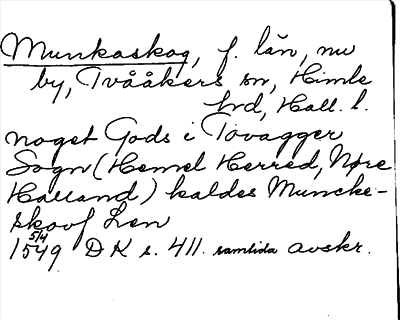 Munkaskog, f. län, nu
by, Tvååkers sn, Himle
hd, Hall. l.
noget Gods i Tovagger
Sogn (Hemel Herred, Nøre
Halland) kaldes Muncke-
skouf Len
5/4
1549 DK s. 411. samtida avskr.